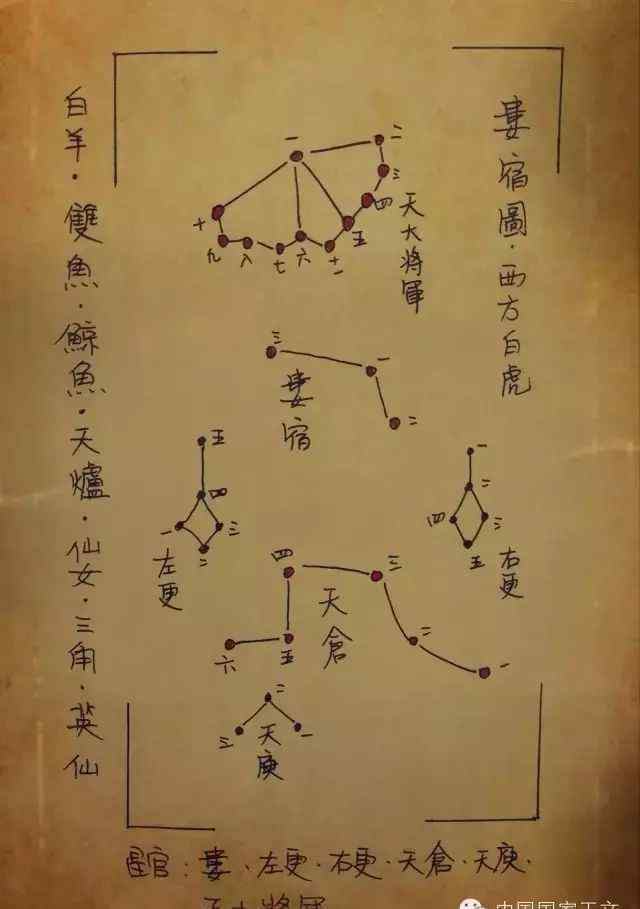 婁宿圖·西方白虎
白羊·雙魚·鯨魚·天爐·仙女·三角·英仙
一
二
三
四
五
十一
六
七
八
九
十
天大將軍
三
一
二
婁宿
五
四
一
三
二
左更
一
二
四
三
五
右更
四
三
五
六
二
一
天倉
二
三
一
天庾
星官：婁·左更·右更·天倉·天庾·
天大將軍
中国国家天文